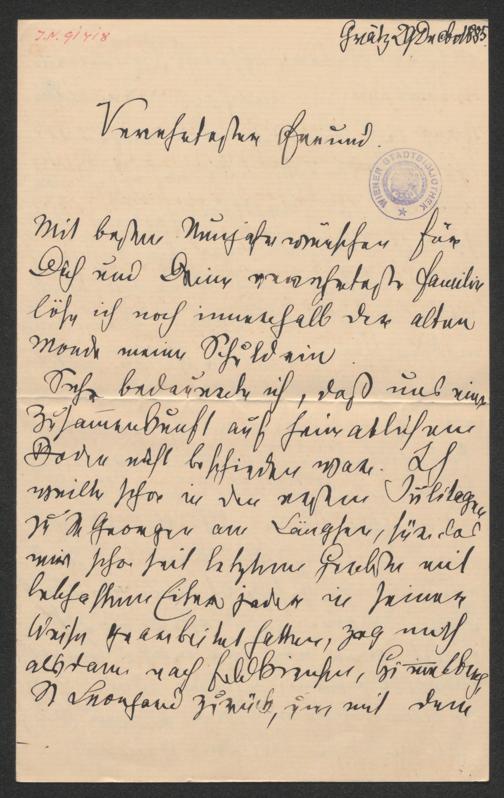 I.N. 91718
Grätz 29 Decbr 1885
Verehrtester Freund.
WIENER STADTBIBLIOTHEK
Mit besten Neujahrwünschen für
Dich und Deine verehrteste Familie
löse ich noch innerhalb der alten
Monde meine Schuld ein.
Sehr bedauerte ich, daß uns eine
Zusammenkunft auf heimatlichem
Boden nicht beschieden war. Ich
weilte schon in den ersten Julitagen
zu St Georgen am Längsee, für das
wir schon seit letztem Herbste mit
lebhaftem Eifer jeder in seiner
Weise gearbeitet hatten, zog mich
alsdann nach Feldkirchen, Himmelberg,
St Leonhard zurück, um mit dem